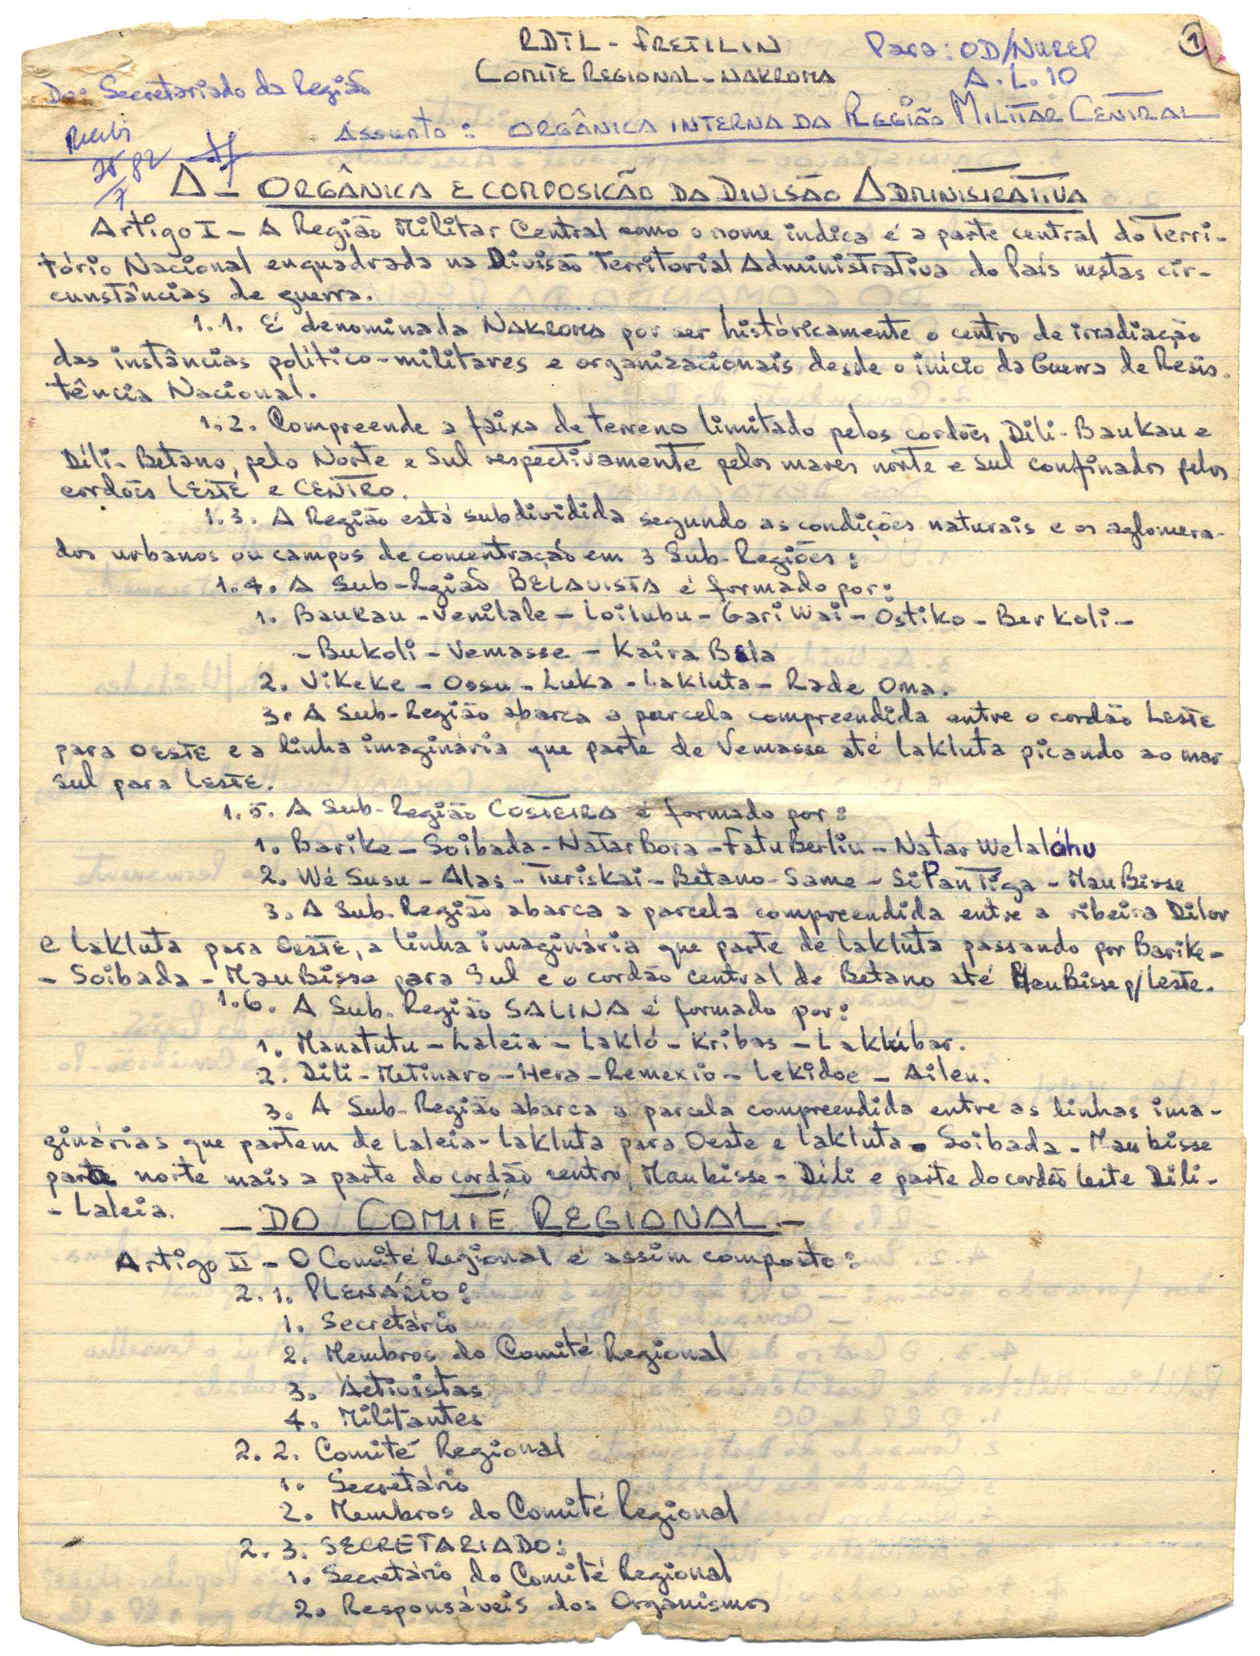 RDTL - FRETILIN
Para: OD/NUREP
1
COMITÉ REGIONAL - NAKROMA
A.L. 10
Do: Secretariado da Região
Assunto: ORGÂNICA INTERNA DA REGIÃO MILITAR CENTRAL
Recebi
25/7 82
A - ORGÂNICA E COMPOSIÇÃO DA DIVISÃO ADMINISTRATIVA
Artigo I - A Região Militar Central como o nome indica é a parte central do Terri-
tório Nacional enquadrada na Divisão Territorial Administrativa do País nestas cir-
cunstâncias de guerra.
1.1. É denominada NAKROMA por ser históricamente o centro de irradiação
das instâncias político-militares e organizacionais desde o início da Guerra de Resis-
tência Nacional.
1.2. Compreende a faixa de terreno limitado pelos cordões Dili-Baukau e
Díli-Betano, pelo Norte e Sul respectivamente pelos mares norte e sul confinados pelos
cordões LESTE e CENTRO.
1.3. A Região está subdividida segundo as condições naturais e os aglomera-
dos urbanos ou campos de concentração em 3 Sub-Regiões:
1.4. A Sub-Região BELAVISTA é formado por:
1. Baukau - Venilale - Loilubu - Gari Wai - Ostiko - Ber Koli -
- Bukoli - Vemasse - Kaira Bela
2. Vikeke - Ossu - Luka - Lakluta - Rade Oma.
3. A Sub-Região abarca a parcela compreendida entre o cordão LESTE
para OESTE e a linha imaginária que parte de Vemasse até Lakluta picando ao mar
sul para LESTE.
1.5. A Sub-Região COSTEIRA é formado por:
1. Barike - Soibada - Natar Bora - Fatu Berliu - Natar Welalúhu
2. Wé Susu - Alas - Turiskai - Betano - Same - Si Pan Tiga - Mau Bisse
3. A Sub-Região abarca a parcela compreendida entre a ribeira Dilor
e Lakluta para OESTE, a linha imaginária que parte de Lakluta passando por Barike-
- Soibada - Mau Bisse para Sul e o cordão central de Betano até Mau Bisse p/ Leste.
1.6. A Sub-Região SALINA é formado por:
1. Manatutu - Laleia - Lakló - Kribas - Laklubar.
2. Dili - Metinaro - Hera - Remexio - Lekidoe - Aileu.
3. A Sub-Região abarca a parcela compreendida entre as linhas ima-
ginárias que partem de Laleia-Lakluta para Oeste e Lakluta - Soibada - Maubisse
parte norte mais a parte do cordão centro, Maubisse - Díli e parte do cordão leste Dili-
- Laleia.
- DO COMITÉ REGIONAL -
Artigo II - O Comité Regional é assim composto:
2.1. PLENÁRIO:
1. Secretário
2. Membros do Comité Regional
3. Activistas
4. Militantes
2.2. Comité Regional
1. Secretário
2. Membros do Comité Regional
2.3. SECRETARIADO:
1. Secretário do Comité Regional
2. Responsáveis dos Organismos